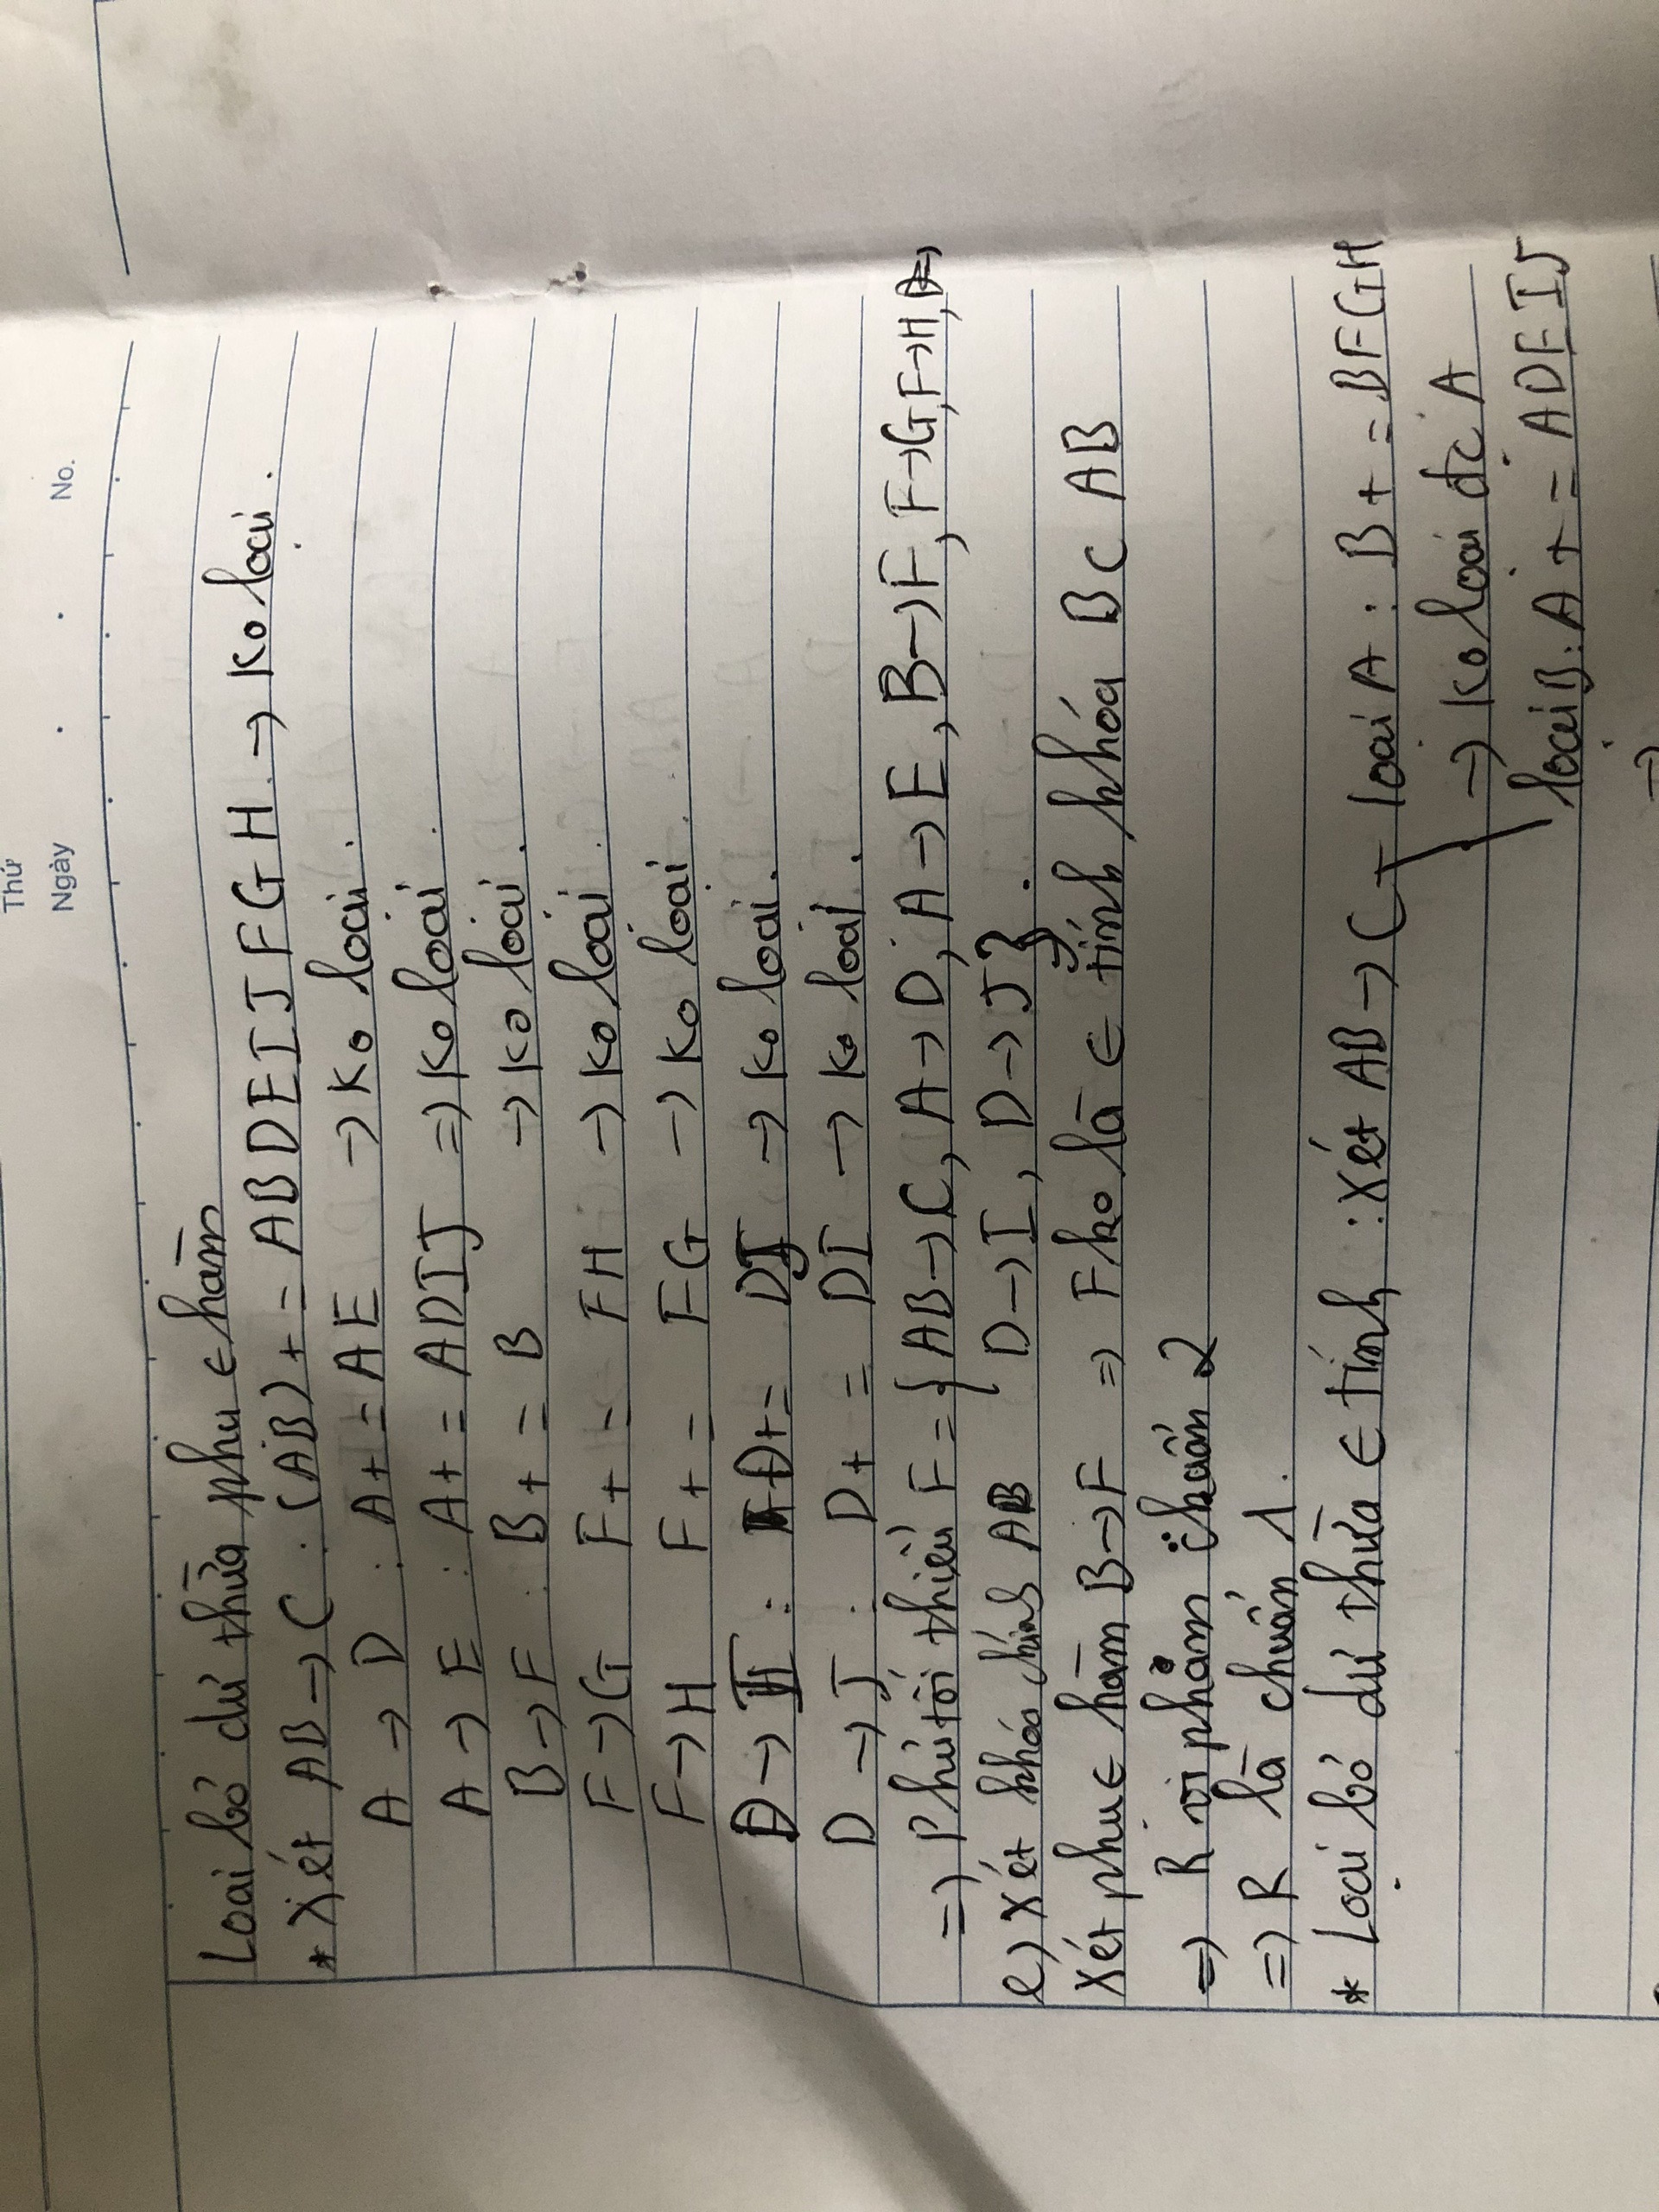 Thứ
Ngày . . No.
Loại bỏ dư thừa phụ ∈ hàm
* Xét AB → C : (AB)+ = ABDEIJFGH → Ko loại.
A → D : A+ = AE → Ko loại.
A → E : A+ = ADIJ ⇒ Ko loại.
B → F : B+ = B → Ko loại.
F → G F+ = FH → Ko loại.
F → H F+ = FG → Ko loại.
D → I : D+ = DJ → Ko loại.
D → J : D+ = DI → Ko loại.
⇒ Phủ tối thiểu F = { AB → C, A → D, A → E, B → F, F → G, F → H,
D → I, D → J }.
e) Xét khóa chính AB
Xét phụ ∈ hàm B → F ⇒ F ko là ∈ tính khóa B ⊂ AB
⇒ R vi phạm chuẩn 2
⇒ R là chuẩn 1.
* Loại bỏ dư thừa ∈ tính : Xét AB → C loại A : B+ = BFGH
⇒ Ko loại đc A
loại B : A+ = ADEIJ
⇒